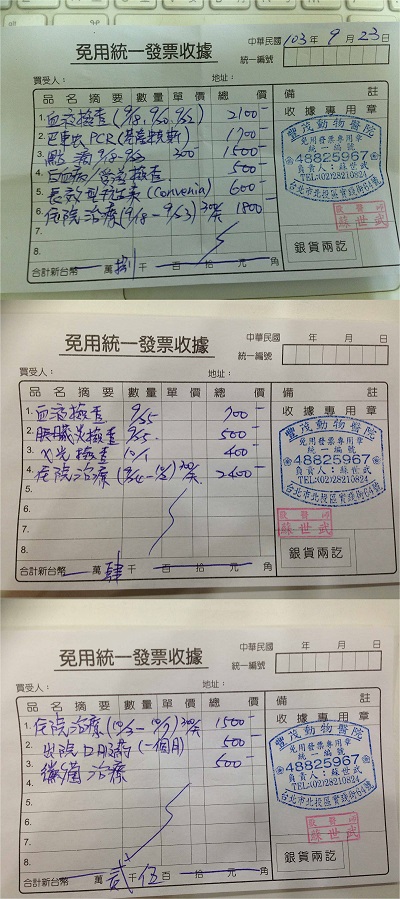 免用統一發票收據
中華民國 103 年 9 月 23 日
統一編號
買受人： 地址：
品名摘要 數量 單價 總價 備註
收據專用章
1. 血液檢查(9/18, 9/20, 9/22) 2100-
2. PCR
3. 點滴 9/18-9/23 300- 1500-
4. 500-
5. 長效型抗生素(Convenia) 600-
6. 住院治療(9/18-9/23) 300/天 1800-
7.
8.
豐茂動物醫院
免用發票專用章
統一編號
48825967
負責人：蘇世武
TEL:(02)28210824
台北市北投區實踐街64號
獸醫師
蘇世武
銀貨兩訖
合計新台幣 萬 捌 千 百 拾 元 角
免用統一發票收據
中華民國 年 月 日
統一編號
買受人： 地址：
品名摘要 數量 單價 總價 備註
收據專用章
1. 血液檢查 9/25 700-
2. 胰臟炎檢查 9/25. 500-
3. X光檢查 10/1 400-
4. 住院治療 300/天 2400-
5.
6.
7.
8.
豐茂動物醫院
免用發票專用章
統一編號
48825967
負責人：蘇世武
TEL:(02)28210824
台北市北投區實踐街64號
獸醫師
蘇世武
銀貨兩訖
合計新台幣 萬 肆 千 百 拾 元 角
免用統一發票收據
中華民國 年 月 日
統一編號
買受人： 地址：
品名摘要 數量 單價 總價 備註
收據專用章
1. 住院治療 300/天 1500-
2. 出院口服藥(一個月) 500-
3. 黴菌治療 500-
4.
5.
6.
7.
8.
豐茂動物醫院
免用發票專用章
統一編號
48825967
負責人：蘇世武
TEL:(02)28210824
台北市北投區實踐街64號
獸醫師
蘇世武
銀貨兩訖
合計新台幣 萬 貳 千 伍 百 拾 元 角